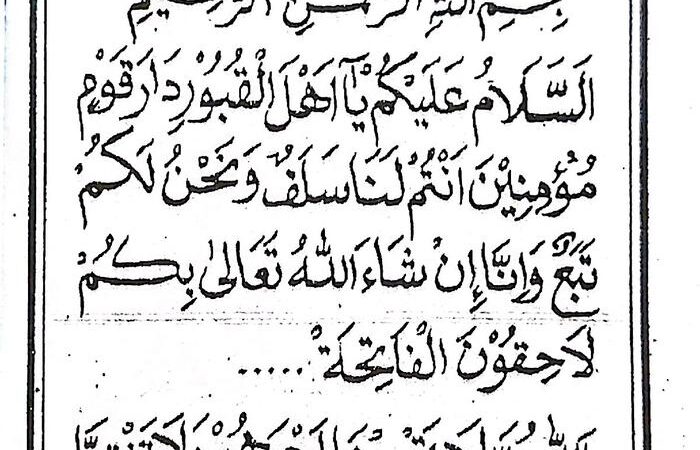 بِسْمِ اللهِ الرَّحْمٰنِ الرَّحِيْمِ
اَلسَّلَامُ عَلَيْكُمْ يَآ اَهْلَ الْقُبُوْرِ دَارَ قَوْمٍ
مُؤْمِنِيْنَ اَنْتُمْ لَنَا سَلَفٌ وَنَحْنُ لَكُمْ
تَبَعٌ وَاِنَّا إِنْ شَاءَ اللهُ تَعَالىٰ بِكُمْ
لَاحِقُوْنَ الْفَاتِحَةْ .....